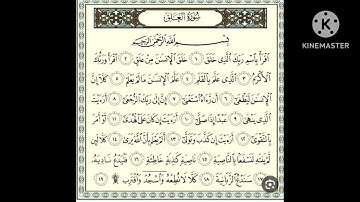 سُورَةُ العَلَقِ
KINEMASTER
بِسْمِ اللَّهِ الرَّحْمَٰنِ الرَّحِيمِ
اقْرَأْ بِاسْمِ رَبِّكَ الَّذِي خَلَقَ ١ خَلَقَ الْإِنسَانَ مِنْ عَلَقٍ ٢ اقْرَأْ وَرَبُّكَ
الْأَكْرَمُ ٣ الَّذِي عَلَّمَ بِالْقَلَمِ ٤ عَلَّمَ الْإِنسَانَ مَا لَمْ يَعْلَمْ ٥ كَلَّا إِنَّ
الْإِنسَانَ لَيَطْغَىٰ ٦ أَن رَّآهُ اسْتَغْنَىٰ ٧ إِنَّ إِلَىٰ رَبِّكَ الرُّجْعَىٰ ٨ أَرَأَيْتَ
الَّذِي يَنْهَىٰ ٩ عَبْدًا إِذَا صَلَّىٰ ١٠ أَرَأَيْتَ إِن كَانَ عَلَى الْهُدَىٰ ١١ أَوْ أَمَرَ
بِالتَّقْوَىٰ ١٢ أَرَأَيْتَ إِن كَذَّبَ وَتَوَلَّىٰ ١٣ أَلَمْ يَعْلَم بِأَنَّ اللَّهَ يَرَىٰ ١٤ كَلَّا لَئِن
لَّمْ يَنتَهِ لَنَسْفَعًا بِالنَّاصِيَةِ ١٥ نَاصِيَةٍ كَاذِبَةٍ خَاطِئَةٍ ١٦ فَلْيَدْعُ نَادِيَهُ
١٧ سَنَدْعُ الزَّبَانِيَةَ ١٨ كَلَّا لَا تُطِعْهُ وَاسْجُدْ وَاقْتَرِب ۩ ١٩